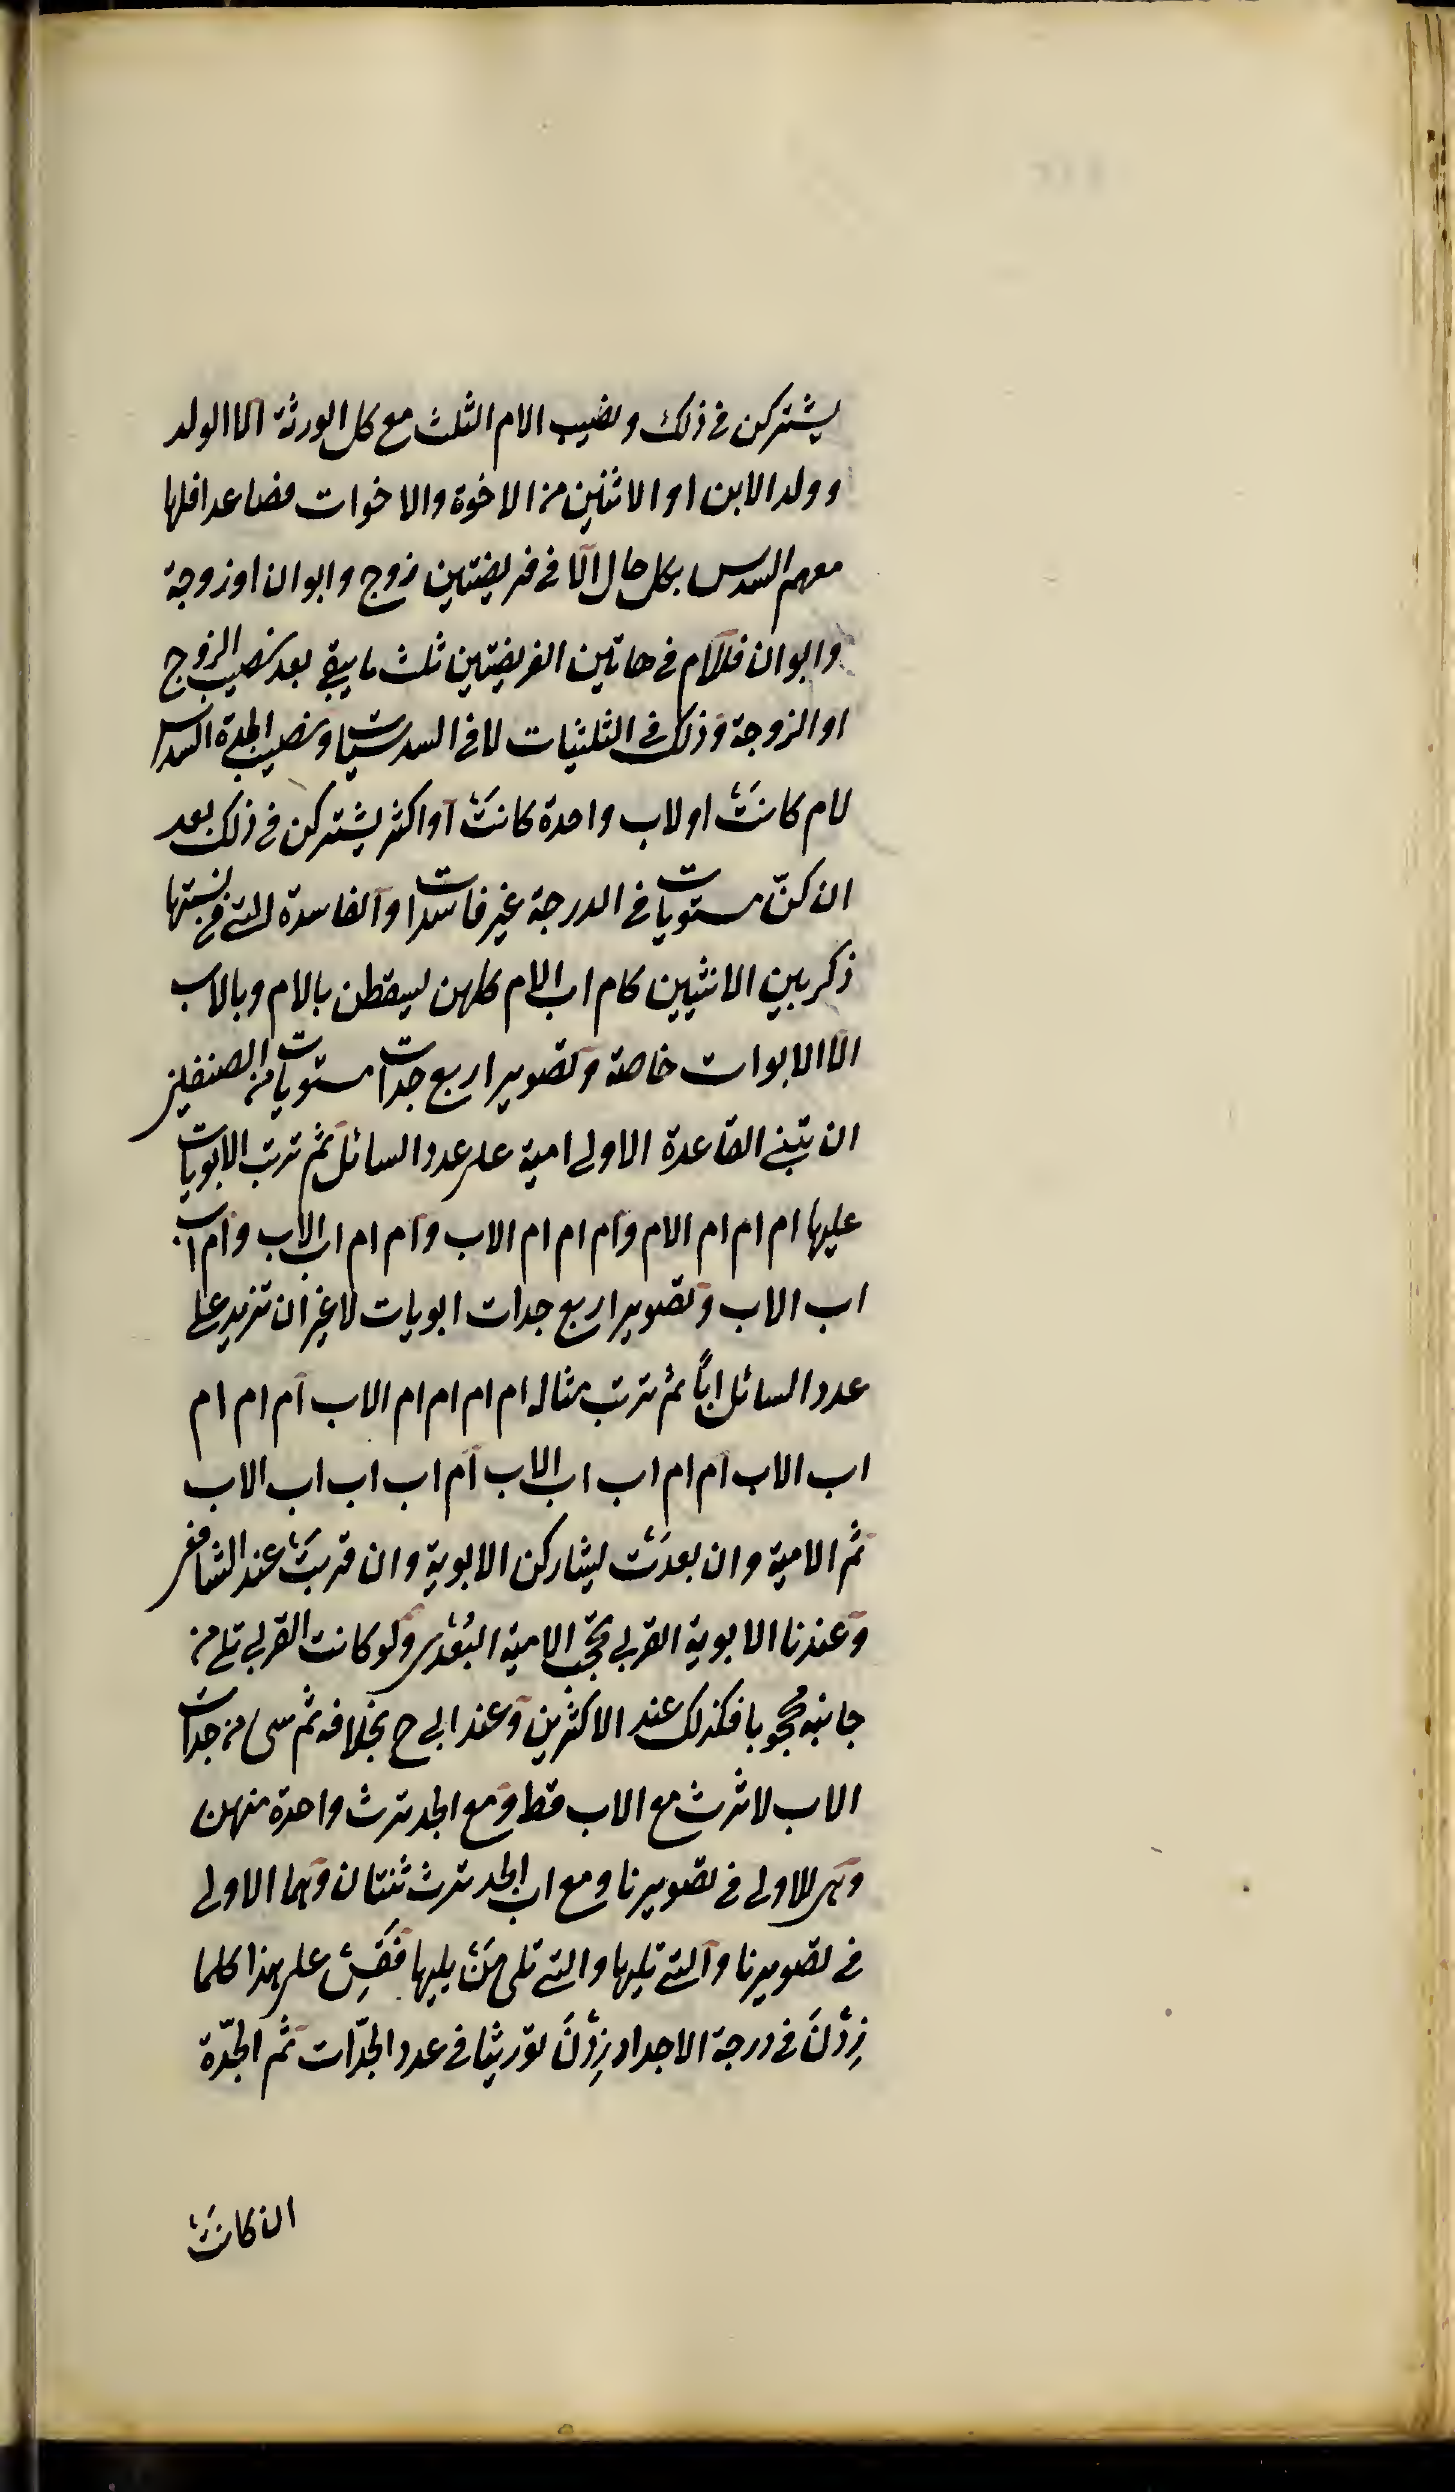 يشتركن فى ذلك ونصيب الام الثلث مع كل الورثة الا الولد
وولد الابن او الاثنين من الاخوة والاخوات فصاعدا فلها
معهم السدس بكل حال الّا فى فريضتين زوج وابوان او زوجة
وابوان فللام فى هاتين الفريضتين ثلث ما يبقى بعد نصيب الزوج
او الزوجة وذلك فى الثلثيات لا فى السدسيات ونصيب الجدة السدس
لام كانَتْ او لاب واحدة كانَتْ او اكثر يشتركن فى ذلك بعد
ان كنّ مستويات فى الدرجة غير فاسدات والفاسدة التى فى نسبتها
ذكر بين الانثيين كام اب الام كلهن يسقطن بالام وبالاب
الا الابوات خاصة وتصوير اربع جدات مستويات من الصنفين
ان تبنى القاعدة الاولى امية على عدد السائل ثم ترتب الابويات
عليها ام ام ام الام وام ام ام الاب وام ام اب الاب وام اب
اب الاب وتصوير اربع جدات ابويات لا غير ان تزيد على
عدد السائل ابًا ثم ترتب مثاله ام ام ام ام الاب ام ام ام
اب الاب ام ام اب اب الاب ام اب اب اب الاب
ثم الامية وان بعدَتْ يشاركن الابوية وان قربَتْ عند الشافعى
وعندنا الابوية القربى تحجب الامية البُعْدى ولو كانت القربى تلى من
جانبه محجوبا فكذلك عند الاكثرين وعند ابى ح بخلافه ثم سىء من جدات
الاب لا ترث مع الاب قط ومع الجد ترث واحدة منهن
وهى الاولى فى تصويرنا ومع اب الجد ترث ثنتان وهما الاولى
فى تصويرنا والتى تليها والتى تلى مَنْ يليها فَقِسْ على هذا كلما
زِدْنَ فى درجة الاجداد زِدْنَ توريثا فى عدد الجدّات ثم الجدّة
ان كانَتْ